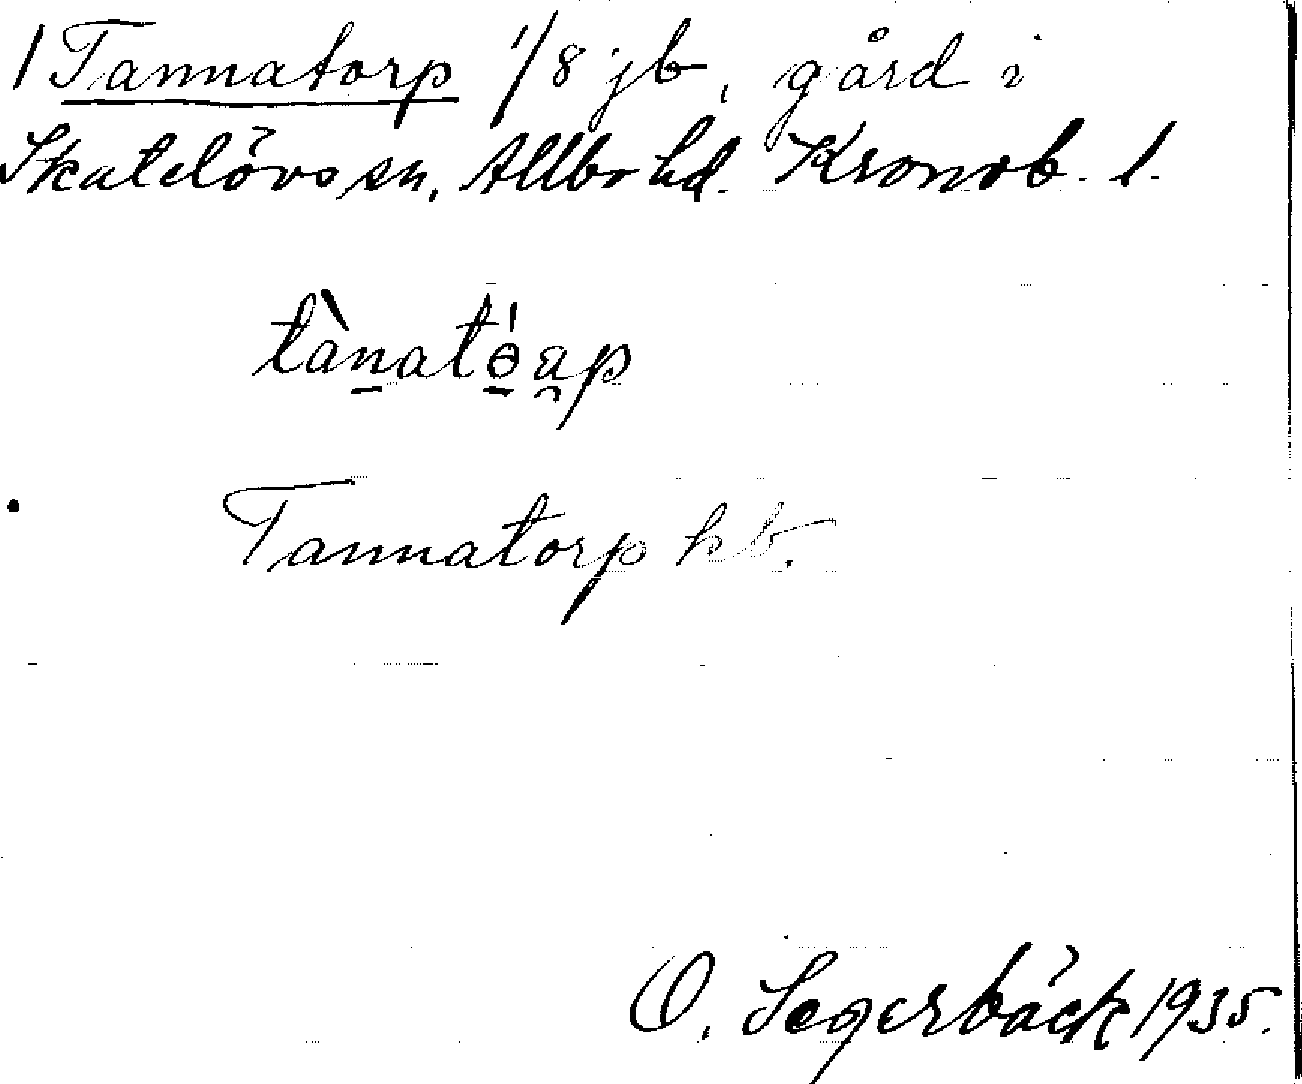 1 Tannatorp 1/8 jb, gård i
Skatelövs sn, Allbo hd. Kronob. l.
tàn̲atө̲́a̯p
Tannatorp hb.
O. Segerbäck 1935.